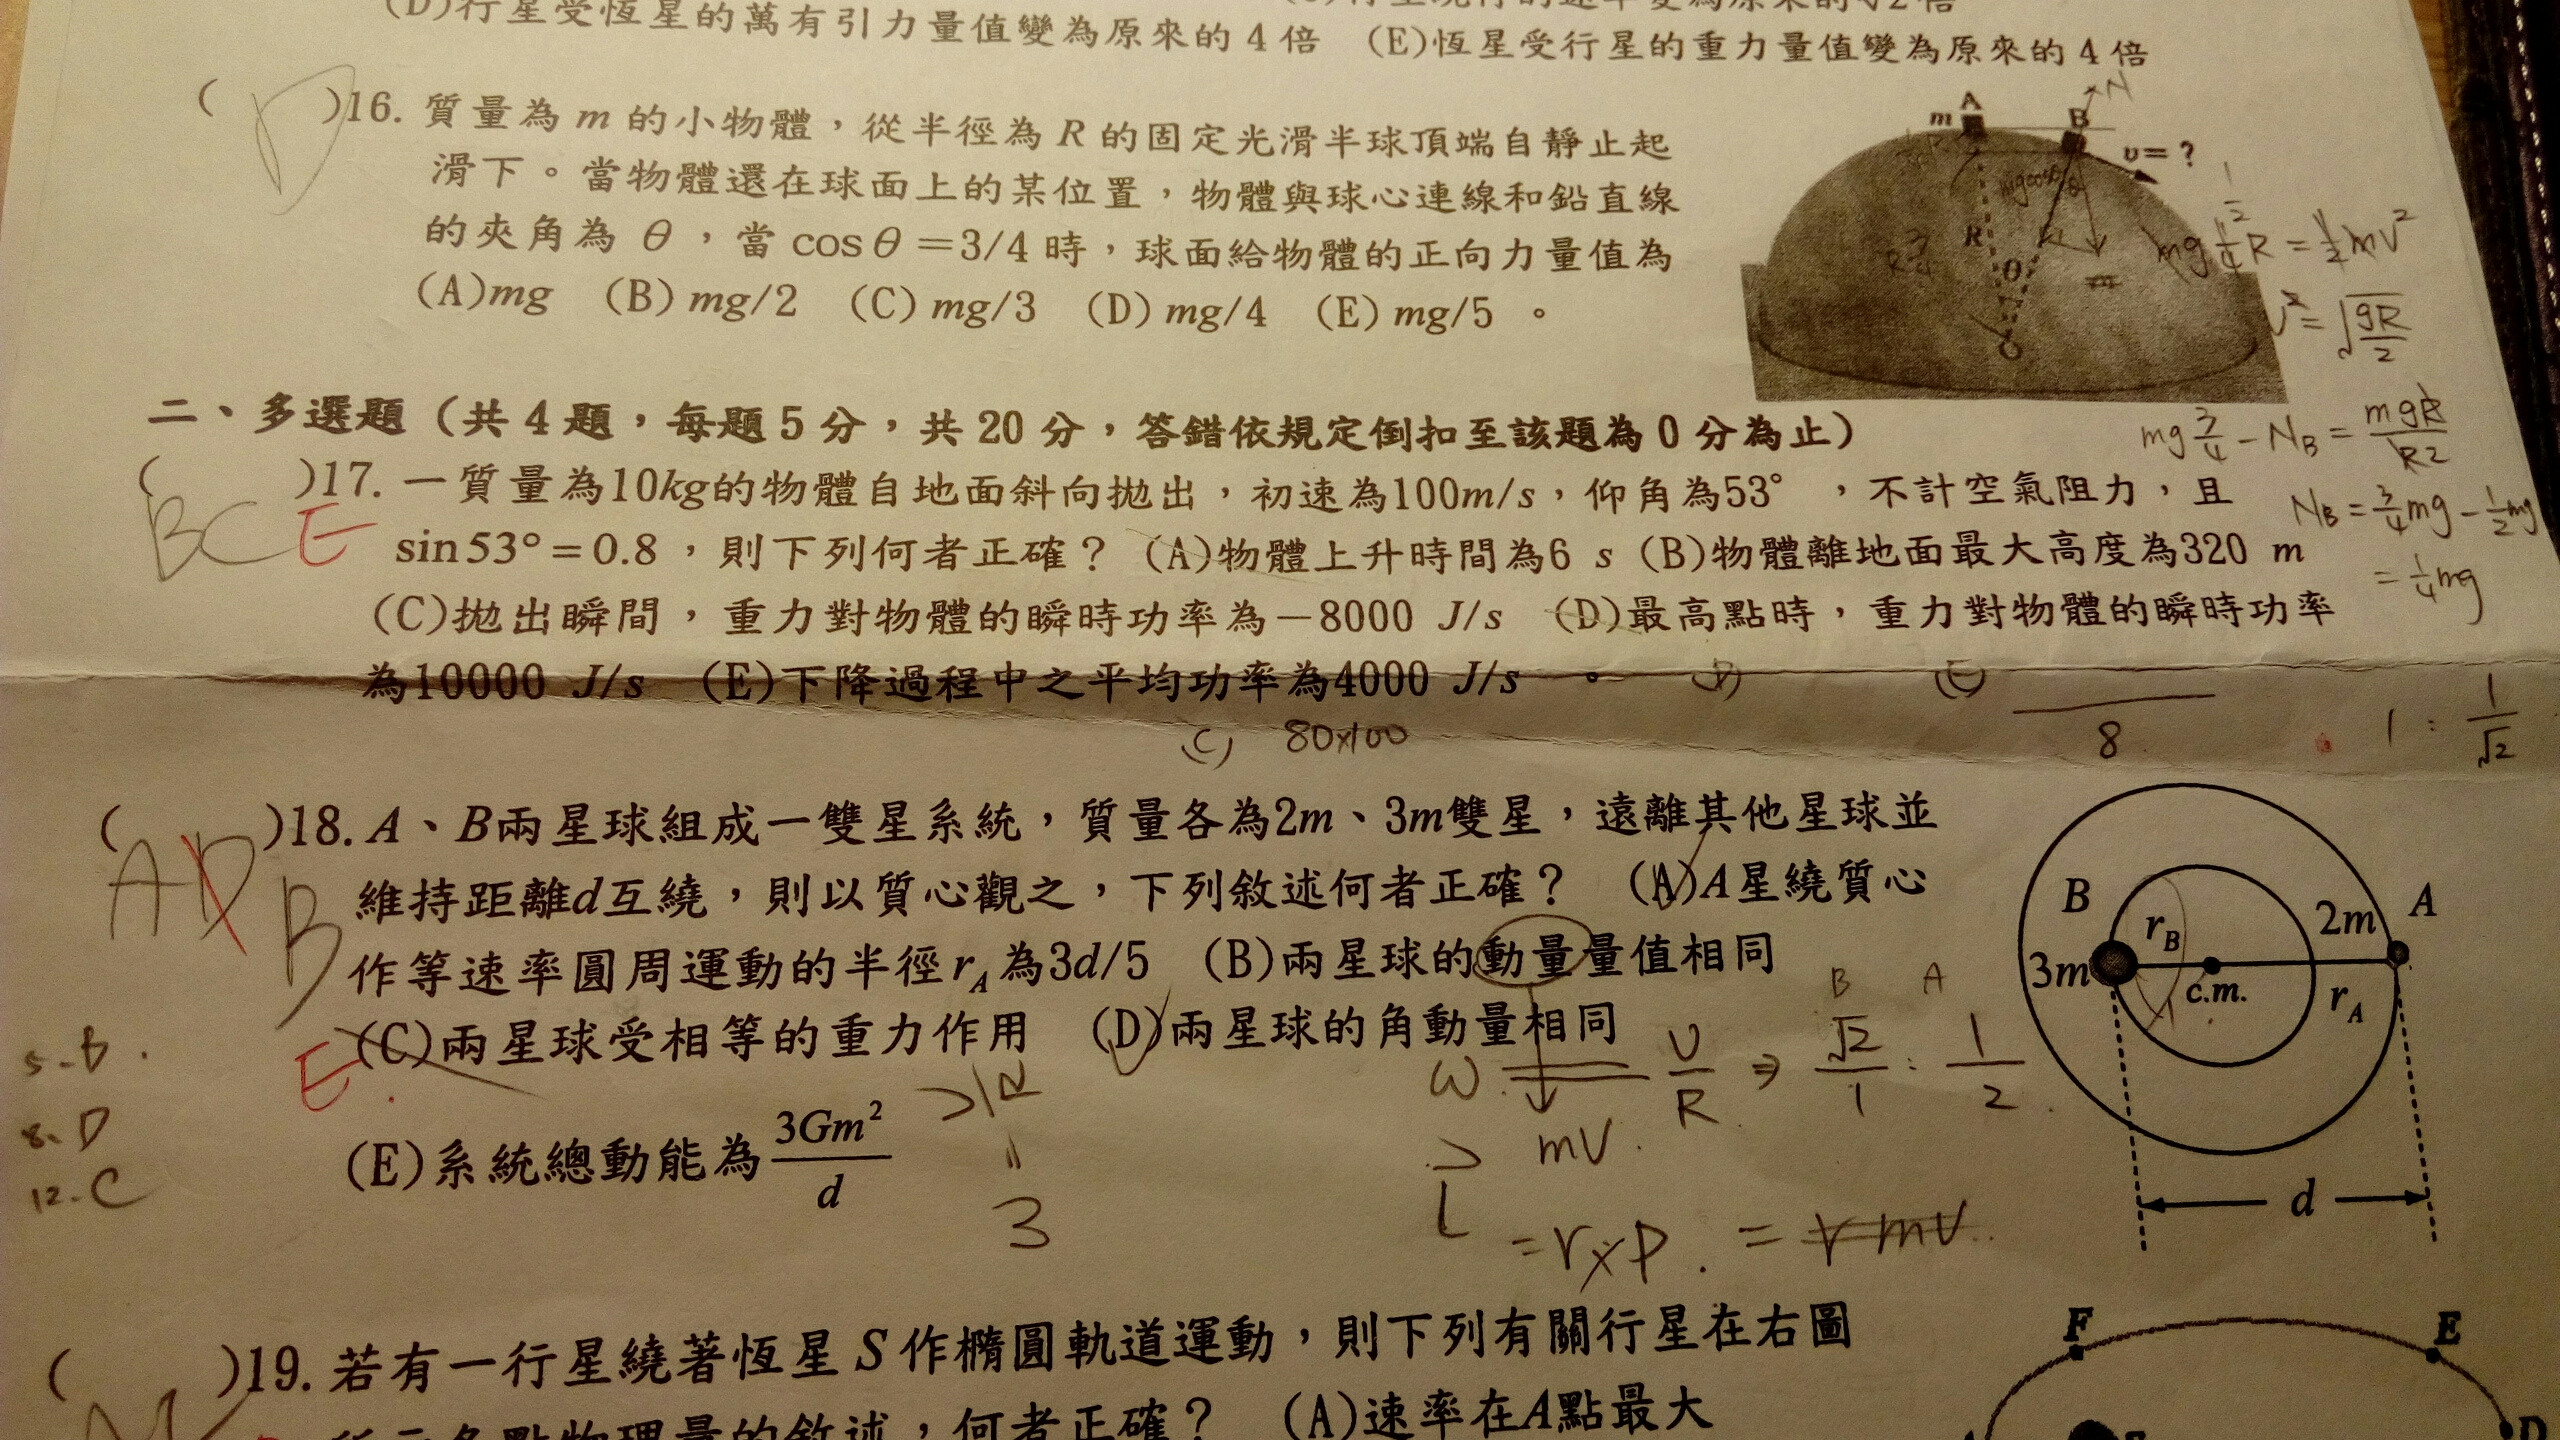 (D)行星受恆星的萬有引力量值變為原來的4倍 (E)恆星受行星的重力量值變為原來的4倍
( D )16. 質量為 m 的小物體，從半徑為 R 的固定光滑半球頂端自靜止起
滑下。當物體還在球面上的某位置，物體與球心連線和鉛直線
的夾角為 θ，當 cosθ=3/4 時，球面給物體的正向力量值為
(A)mg (B) mg/2 (C) mg/3 (D) mg/4 (E) mg/5 。
m A B N
υ=?
R θ
mgcosθ
mg 1/4 R = 1/2 mV²
V² = √(gR/2)
mg 3/4 - N_B = mgR/R2
N_B = 3/4 mg - 1/2 mg
= 1/4 mg
二、多選題（共 4 題，每題 5 分，共 20 分，答錯依規定倒扣至該題為 0 分為止）
( BC E )17. 一質量為10kg的物體自地面斜向拋出，初速為100m/s，仰角為53°，不計空氣阻力，且
sin53°=0.8，則下列何者正確？ (A)物體上升時間為6 s (B)物體離地面最大高度為320 m
(C)拋出瞬間，重力對物體的瞬時功率為−8000 J/s (D)最高點時，重力對物體的瞬時功率
為10000 J/s (E)下降過程中之平均功率為4000 J/s 。
(D) (E)
8
1 : 1/√2
(C) 80x100
( AD B E )18. A、B兩星球組成一雙星系統，質量各為2m、3m雙星，遠離其他星球並
維持距離d互繞，則以質心觀之，下列敘述何者正確？ (A)A星繞質心
作等速率圓周運動的半徑r_A為3d/5 (B)兩星球的動量量值相同
(C)兩星球受相等的重力作用 (D)兩星球的角動量相同
(E)系統總動能為 3Gm²/d
B r_B 2m A
3m c.m. r_A
d
B A
ω = V/R ⇒ √2/1 : 1/2
mV
L = r×P. = r mV
3
5.B.
8.D
12.C
( )19. 若有一行星繞著恆星 S 作橢圓軌道運動，則下列有關行星在右圖
所示各點物理量的敘述，何者正確？ (A)速率在A點最大
F E
D